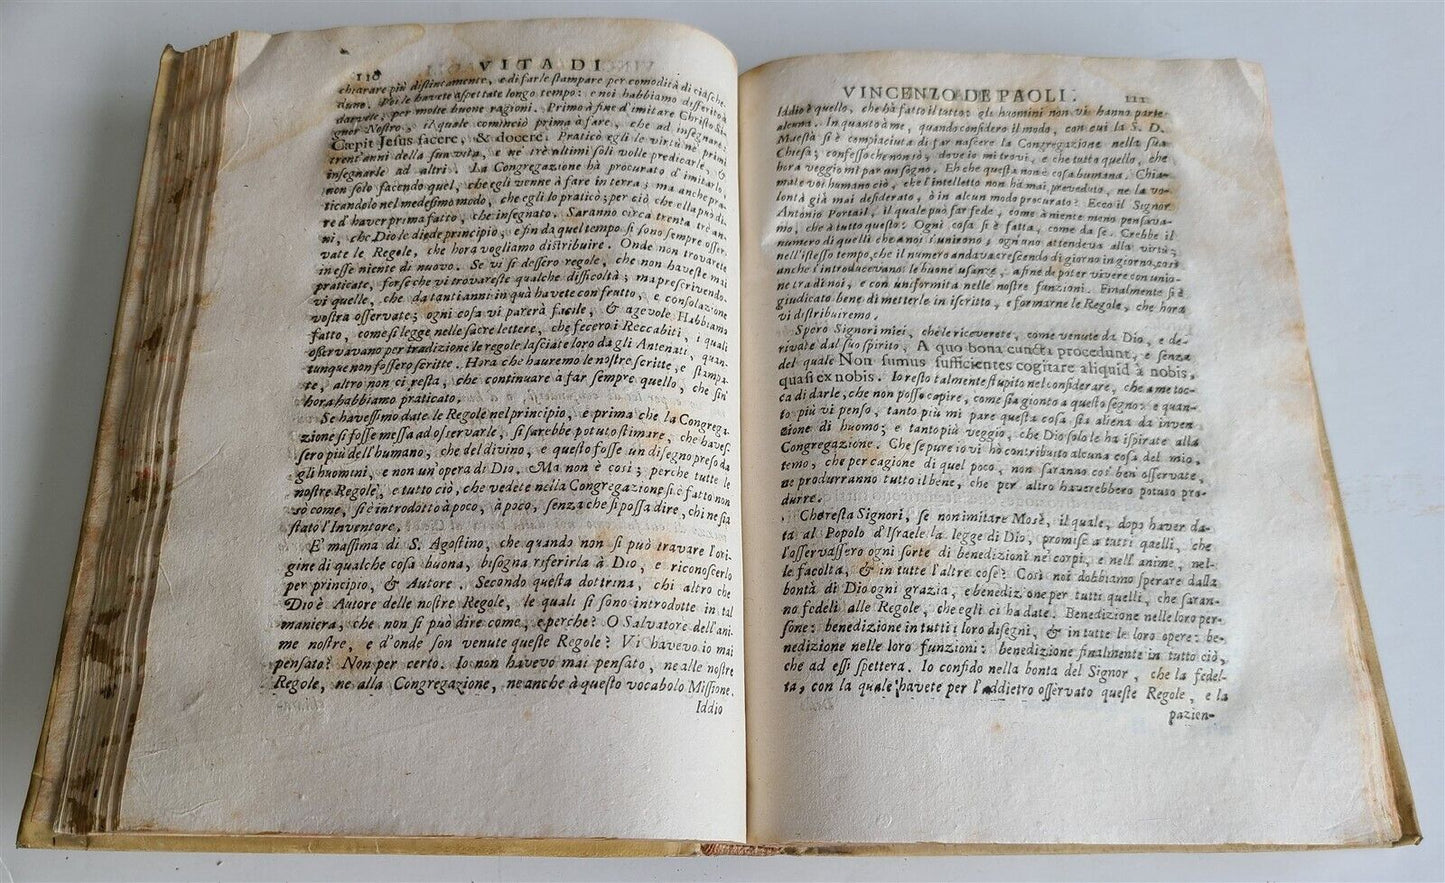 110
VITA DI
chiarare più distintamente, e di farle stampare per comodità di ciasche-
duno. Voi le havete aspettate longo tempo: e noi habbiamo differito à
darvele, per molte buone ragioni. Primo à fine d'imitare Christo Si-
gnor Nostro, il quale cominciò prima à fare, che ad insegnare:
Cæpit Jesus facere, & docere. Praticò egli le virtù ne' primi
trent'anni della sua vita, e ne' trè altimi soli volle predicarle, &
insegnarle ad altri. La Congregazione hà procurato d'imitarlo,
non solo facendo quel, che egli venne à fare in terra; ma anche pra-
ticandolo nel medesimo modo, che egli lo praticò; per ciò che ella può di-
re d'haver prima fatto, che insegnato. Saranno circa trenta trè an-
ni, che Dio le diede principio, e fin da quel tempo si sono sempre osser-
vate le Regole, che hora vogliamo distribuire. Onde non trovarete
in esse niente di nuovo. Se vi si dessero regole, che non haveste mai
praticate, forse che vi trovareste qualche difficoltà; ma prescrivendo-
vi quelle, che da tanti anni in quà havete con frutto, e consolazione
vostra osservate; ogni cosa vi parerà facile, & agevole Habbiamo
fatto, come si legge nelle sacre lettere, che fecero i Reccabiti, i quali
osservavano per tradizione le regole lasciate loro da gli Antenati, quan-
tunque non fossero scritte. Hora che hauremo le nostre scritte, e stampa-
te, altro non ci resta, che continuare à far sempre quello, che sin'
hora habbiamo praticato.
Se havessimo date le Regole nel principio, e prima che la Congrega-
zione si fosse messa ad osservarle, si sarebbe potuto stimare, che haves-
sero più dell'humano, che del divino, e questo fosse un disegno preso da
gli huomini, e non un'opera di Dio. Ma non è così; perche tutte le
nostre Regole, e tutto ciò, che vedete nella Congregazione si è fatto non
sò come, si è introdotto à poco, à poco, senza che si possa dire, chi ne sia
stato l'Inventore.
E' massima di S. Agostino, che quando non si può travare l'ori-
gine di qualche cosa buona, bisogna riferirla à Dio, e riconoscerlo
per principio, & Autore. Secondo questa dottrina, chi altro che
Dio è Autore delle nostre Regole, le quali si sono introdotte in tal
maniera, che non si può dire come, e perche? O Salvatore dell'ani-
me nostre, e d'onde son venute queste Regole? Vi havevo io mai
pensato? Non per certo. Io non havevo mai pensato, ne alle nostre
Regole, ne alla Congregazione, ne anche à questo vocabolo Missione.
Iddio
VINCENZO DE PAOLI. 111
Iddio è quello, che hà fatto il tutto: gli huomini non vi hanno parte
alcuna. In quanto à me, quando considero il modo, con cui la S. D.
Maestà si è compiaciuta di far nascere la Congregazione nella sua
Chiesa; confesso che non sò, dove io mi trovi, e che tutto quello, che
hora veggio mi par un sogno. Eh che questa non è cosa humana. Chia-
mate voi humano ciò, che l'intelletto non hà mai preveduto, ne la vo-
lontà già mai desiderato, ò in alcun modo procurato? Ecco il Signor
Antonio Portail, il quale può far fede, come à niente meno pensava-
mo, che à tutto questo: Ogni cosa si è fatta, come da se. Crebbe il
numero di quelli che a noi s'unirono, ogn'uno attendeva alla virtù;
nell'istesso tempo, che il numero andava crescendo di giorno in giorno, così
anche s'introducevano le buone usanze, a fine de poter vivere con unio-
ne tra di noi, e con uniformità nelle nostre funzioni. Finalmente si è
giudicato bene di metterle in iscritto, e formarne le Regole, che hora
vi distribuiremo.
Spero Signori miei, che le riceverete, come venute da Dio, e de-
rivate dal suo spirito, A quo bona cuncta procedunt, e senza
del quale Non sumus sufficientes cogitare aliquid à nobis,
quasi ex nobis. Io resto talmente stupito nel considerare, che a me toc-
ca di darle, che non posso capire, come sia gionto a questo segno: e quan-
to più vi penso, tanto più mi pare questa cosa sia aliena da inven
zione di huomo; e tanto più veggio, che Dio solo le ha ispirate alla
Congregazione. Che se pure io vi hò contribuito alcuna cosa del mio,
temo, che per cagione di quel poco, non saranno così ben osservate,
ne produrranno tutto il bene, che per altro haverebbero potuto pro-
durre.
Che resta Signori, se non imitare Mosè, il quale, dopo haver da-
ta al Popolo d'Israele la legge di Dio, promise a tutti quelli, che
l'osservassero ogni sorte di benedizioni ne' corpi, e nell'anime, nel-
le facoltà, & in tutte l'altre cose? Così noi dobbiamo sperare dalla
bontà di Dio ogni grazia, e benedizione per tutti quelli, che saran-
no fedeli alle Regole, che egli ci ha date. Benedizione nelle loro per-
sone: benedizione in tutti i loro disegni, & in tutte le loro opere: be-
nedizione nelle loro funzioni: benedizione finalmente in tutto ciò,
che ad essi spetterà. Io confido nella bontà del Signor, che la fedel-
tà, con la quale havete per l'addietro osservato queste Regole, e la
pazien-